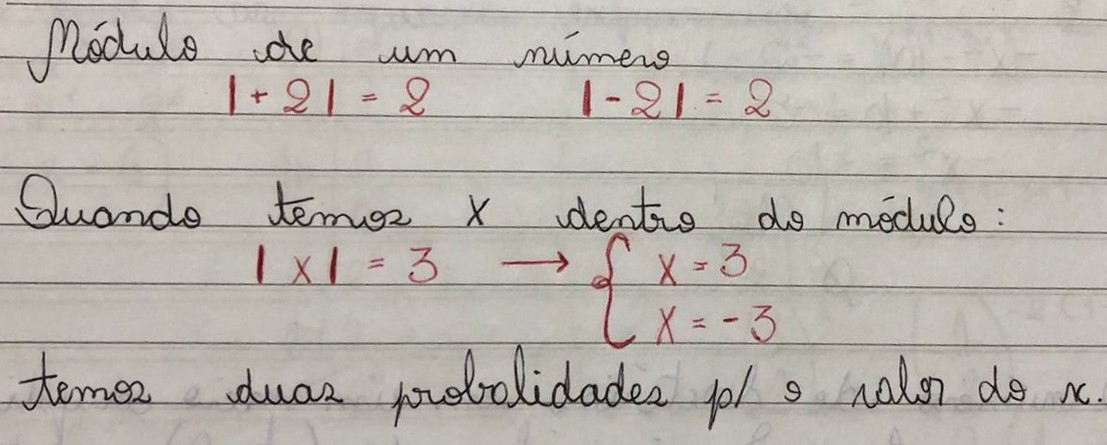 Módulo de um número
|+2| = 2 |-2| = 2
Quando temos x dentro do módulo:
|x| = 3 → { x = 3
x = -3
temos duas probalidades p/ o valor do x.